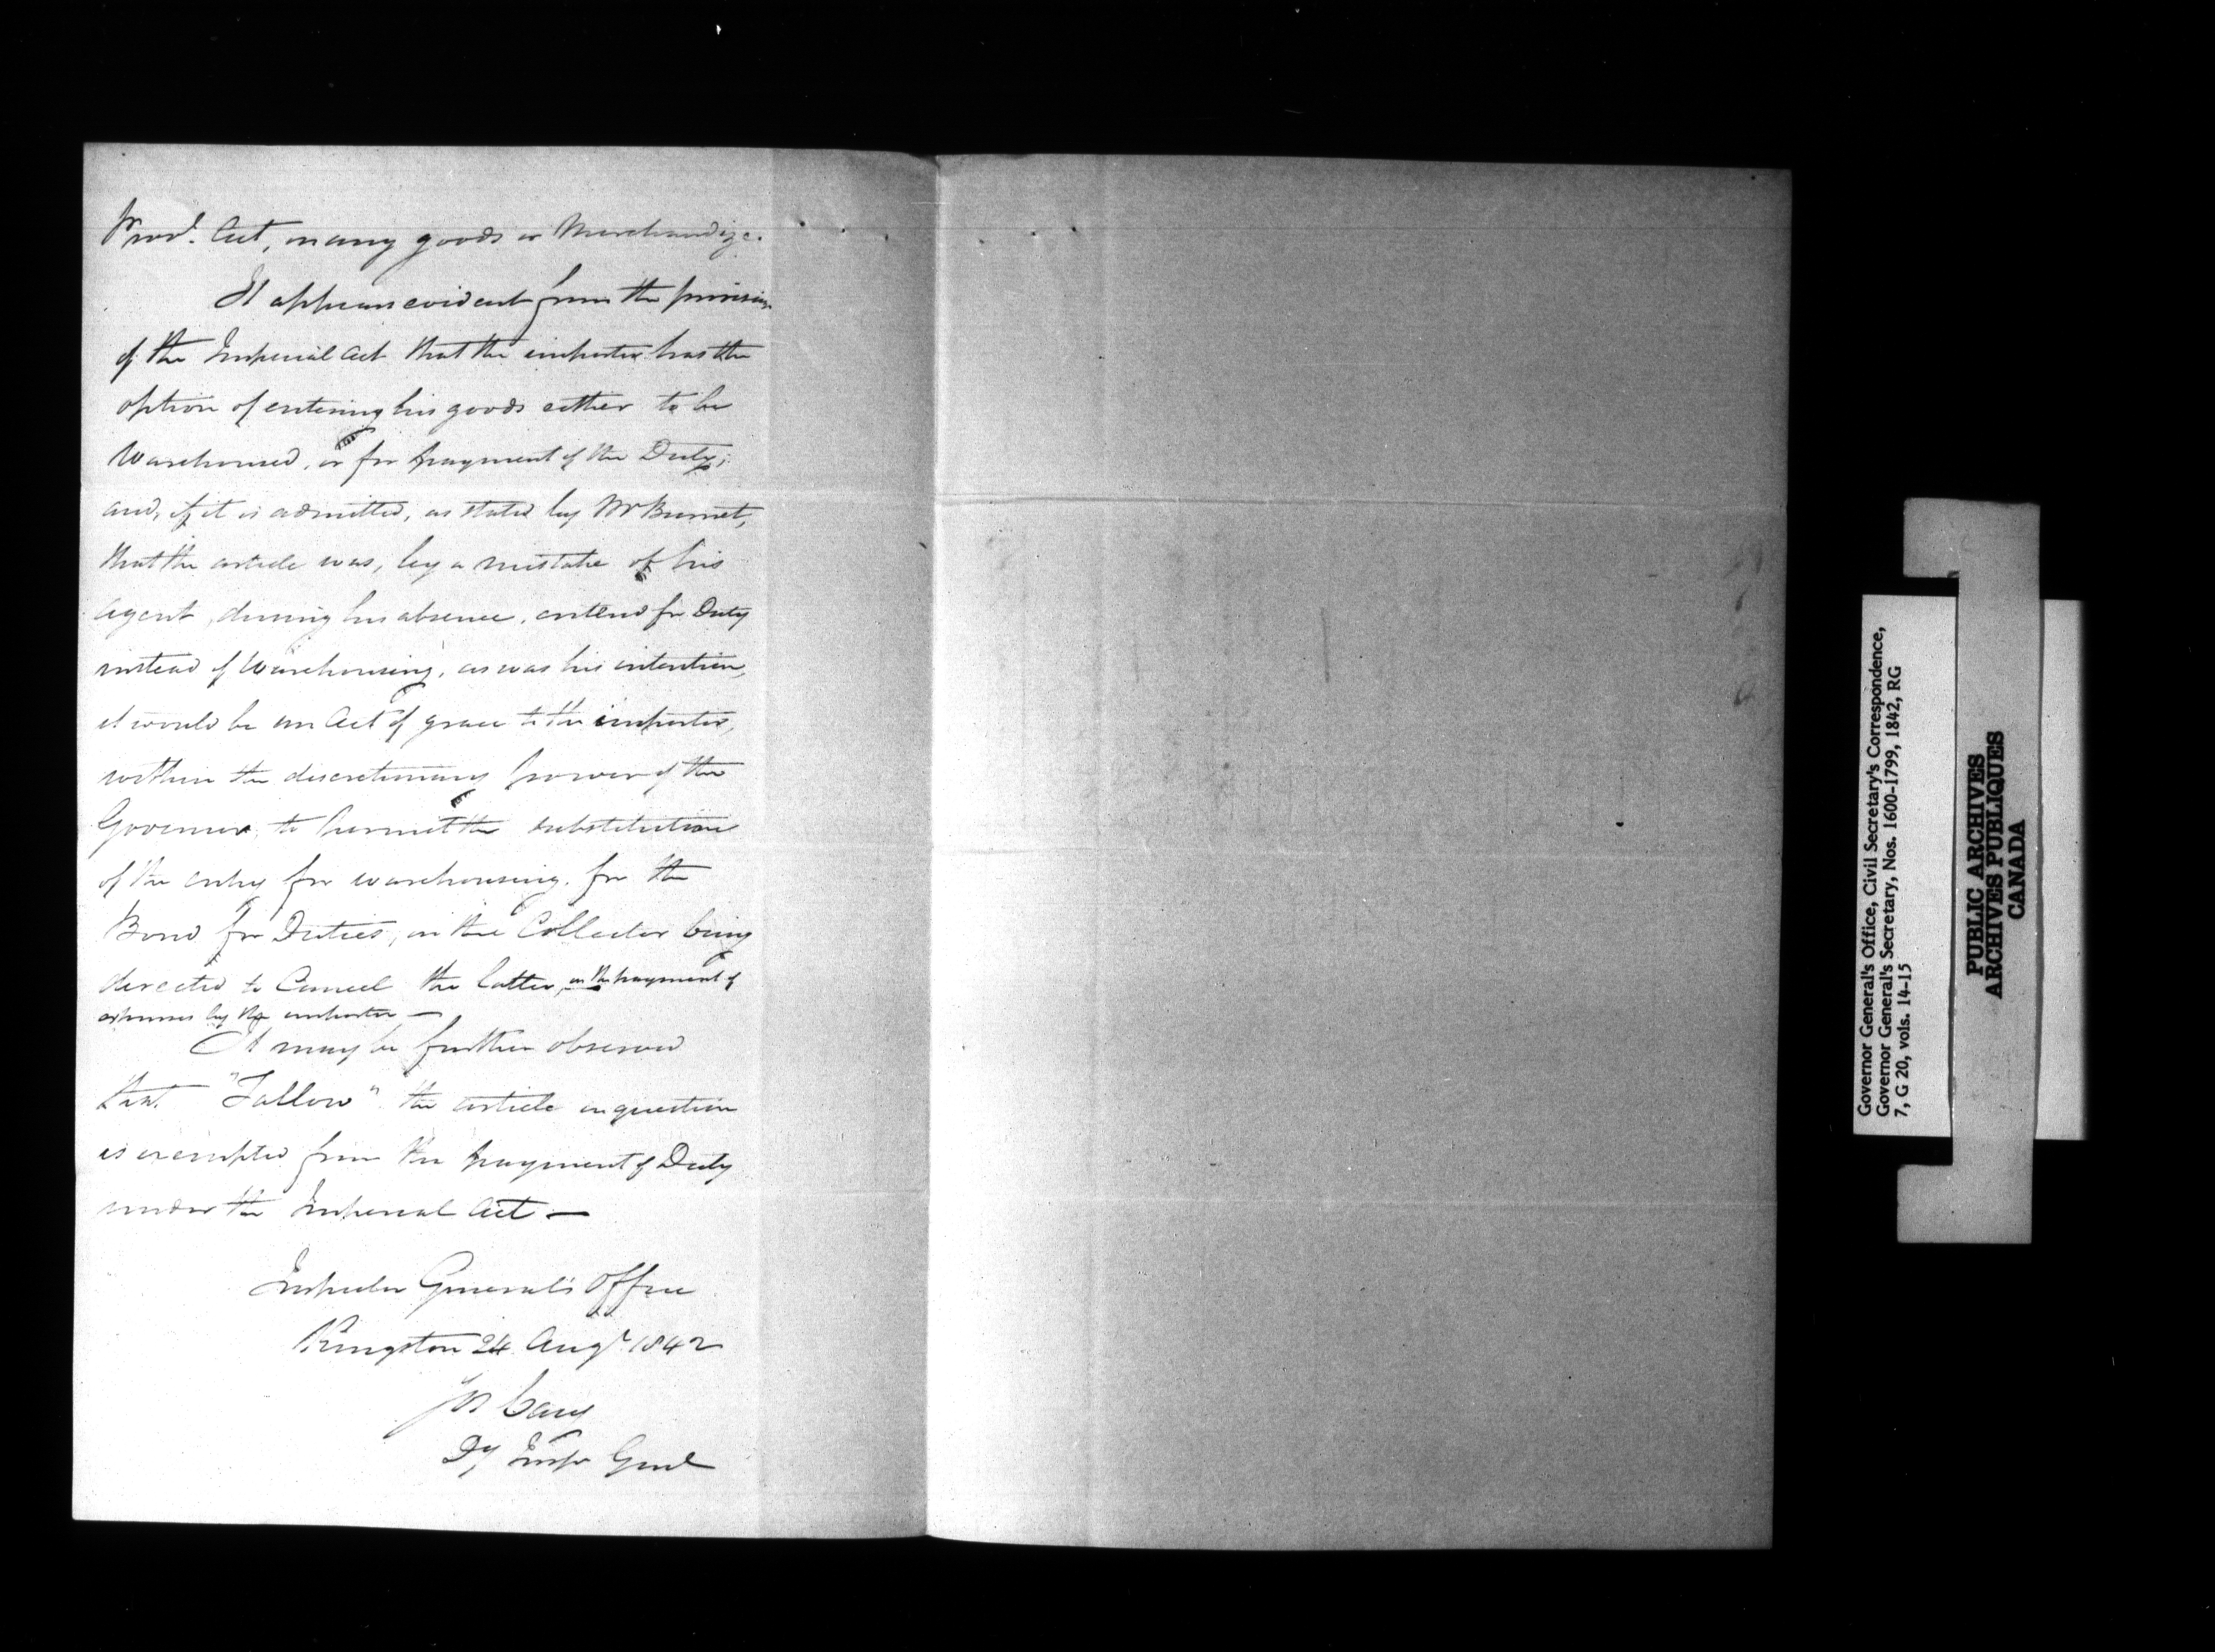 Provl. Act, on any goods or Merchandize.
It appears evident from the provision
of the Imperial Act that the importer has the
option of entering his goods either to be
Warehoused, or for payment of the Duty;
and, if it is admitted, as stated by Mr Burnet,
that the article was, by a mistake of his
Agent, during his absence, entered for Duty
instead of Warehousing, as was his intention,
it would be an Act of grace to the importer,
within the discretionary power of the
Governor, to permit the substitution
of the entry for warehousing, for the
Bond for Duties, on the Collector being
directed to Cancel the latter, on the payment of
expenses by the importer —
It may be further observed
that "Tallow" the article in question
is exempted from the payment of Duty
under the Imperial Act —
Inspector General's Office
Kingston 24 Augt 1842
Jos Cary
Dy Inspr Genl
Governor General's Office, Civil Secretary's Correspondence,
Governor General's Secretary, Nos. 1600-1799, 1842, RG
7, G 20, vols. 14-15
PUBLIC ARCHIVES
ARCHIVES PUBLIQUES
CANADA